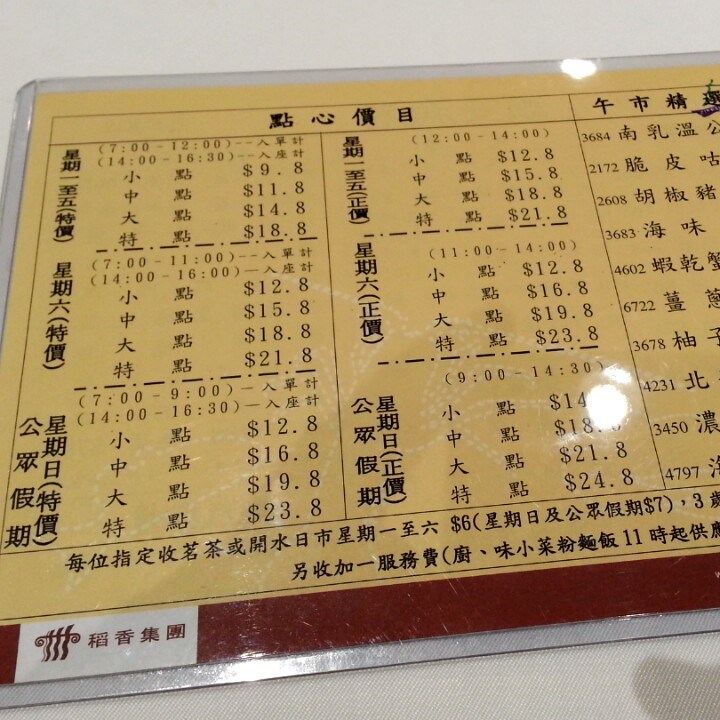 點心價目
星期一至五(特價)
(7:00-12:00)--入單計
(14:00-16:30)--入座計
小點 $9.8
中點 $11.8
大點 $14.8
特點 $18.8
星期六(特價)
(7:00-11:00)--入單計
(14:00-16:00)--入座計
小點 $12.8
中點 $15.8
大點 $18.8
特點 $21.8
星期日(特價)
公眾假期
(7:00-9:00)--入單計
(14:00-16:30)--入座計
小點 $12.8
中點 $16.8
大點 $19.8
特點 $23.8
星期一至五(正價)
(12:00-14:00)
小點 $12.8
中點 $15.8
大點 $18.8
特點 $21.8
星期六(正價)
(11:00-14:00)
小點 $12.8
中點 $16.8
大點 $19.8
特點 $23.8
星期日(正價)
公眾假期
(9:00-14:30)
小點 $14
中點 $18.8
大點 $21.8
特點 $24.8
午市精選
3684 南乳溫公
2172 脆皮咕
2608 胡椒豬
3683 海味
4602 蝦乾蟹
6722 薑蔥
3678 柚子
4231 北
3450 濃
4797
每位指定收茗茶或開水日市星期一至六 $6(星期日及公眾假期$7), 3歲
另收加一服務費(廚、味小菜粉麵飯11時起供應
稻香集團